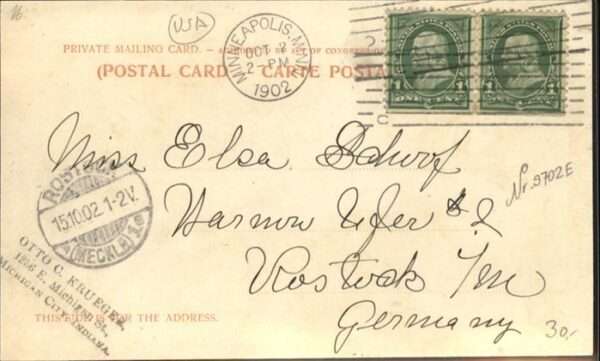 USA
PRIVATE MAILING CARD. – AUTHORIZED BY ACT OF CONGRESS
(POSTAL CARD – CARTE POSTA
MINNEAPOLIS, MINN.
OCT 2
2-PM
1902
1 ONE CENT 1
Miss Elsa
ROSTOCK
15.10.02.1-2V.
(MECKLB)1.
Nr. 9702E
Warnow Ufer # 2
Rostock I/M
OTTO C. KRUEGER,
E. Michigan St.,
MICHIGAN CITY, INDIANA.
THIS SIDE IS FOR THE ADDRESS.
Germany
30,-